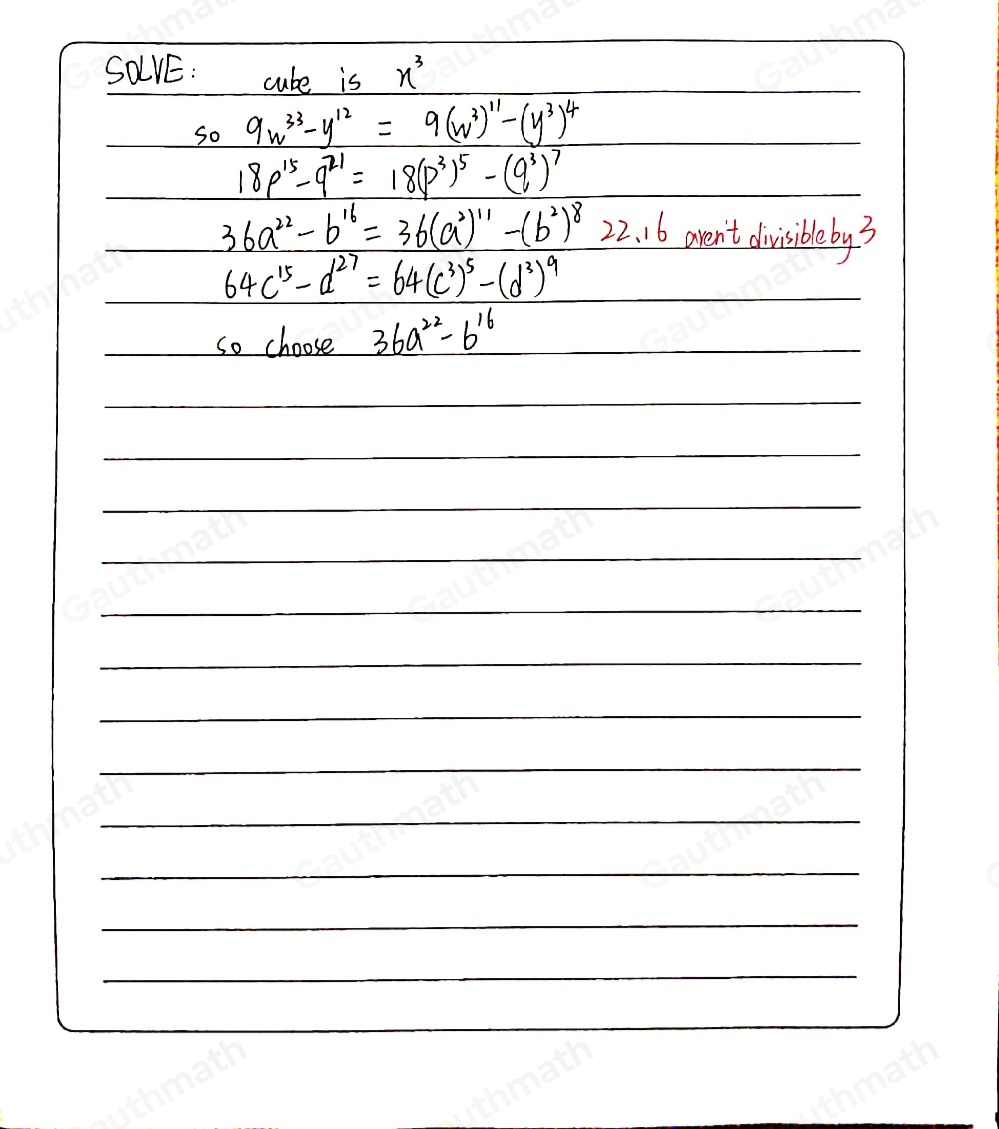 SOLVE: cube is x³
so 9w³³-y¹² = 9(w³)¹¹-(y³)⁴
18p¹⁵-q²¹ = 18(p³)⁵-(q³)⁷
36a²²-b¹⁶ = 36(a²)¹¹-(b²)⁸ 22、16 aren't divisible by 3
64c¹⁵-d²⁷ = 64(c³)⁵-(d³)⁹
so choose 36a²²-b¹⁶
Gauthmath